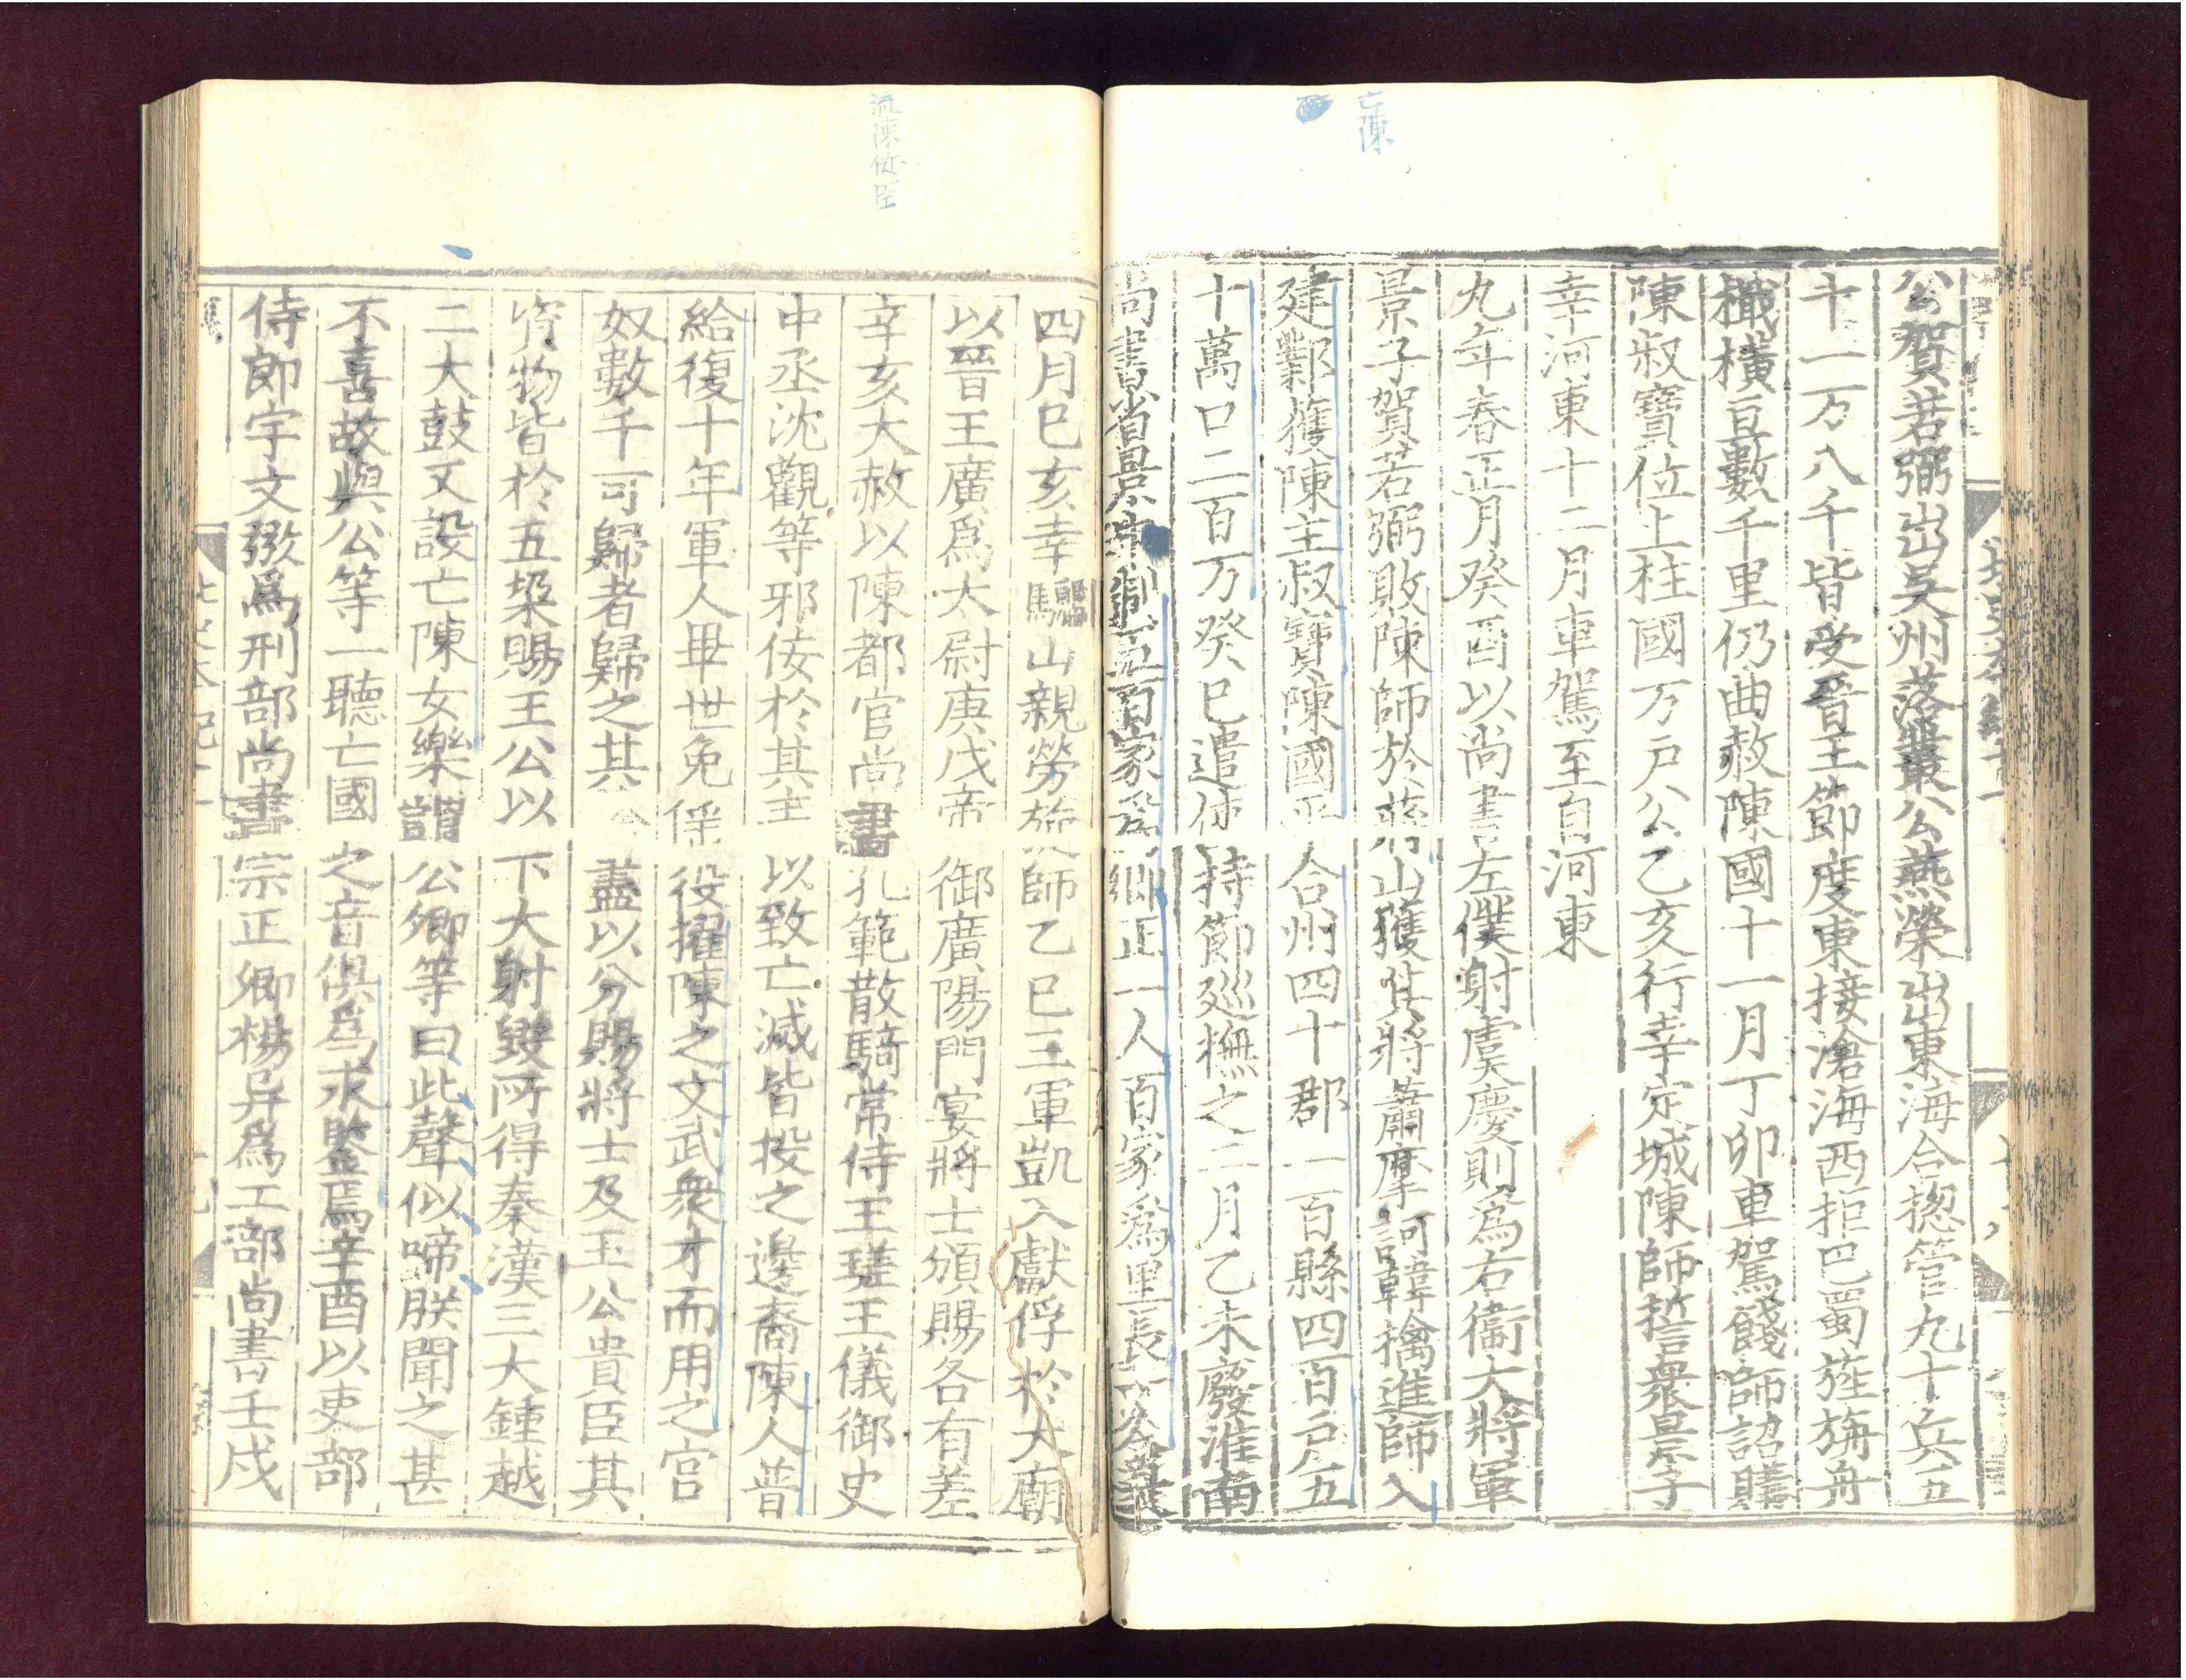 亡陳
公賀若弼出吳州落叢公燕榮出東海合揔管九十兵五
十一万八千皆受晉王節度東接滄海西拒巴蜀旌旃舟
檝橫亘數千里仍曲赦陳國十一月丁卯車駕餞師詔購
陳叔寶位上柱國万戶公乙亥行幸定城陳師誓衆景子
幸河東十二月車駕至自河東
九年春正月癸酉以尚書左僕射虞慶則爲右衞大將軍
景子賀若弼敗陳師於蔣山獲其將蕭摩訶韓擒進師入
建鄴獲陳主叔寶陳國平合州四十郡一百縣四百戶五
十萬口二百万癸巳遣使持節廵撫之二月乙未廢淮南
尚書省景申制五百家爲鄉正一人百家爲里長一人
流陳佞臣
四月巳亥幸驪山親勞旋師乙巳三軍凱入獻俘於大廟
以晉王廣爲太尉庚戌帝御廣陽門宴將士頒賜各有差
辛亥大赦以陳都官尚書孔範散騎常侍王瑳王儀御史
中丞沈觀等邪佞於其主以致亡滅皆投之邊裔陳人普
給復十年軍人畢世免徭役擢陳之文武衆才而用之宮
奴數千可歸者歸之其盡以分賜將士及王公貴臣其
資物皆於五垜賜王公以下大射毀所得秦漢三大鍾越
二大鼓又設亡陳女樂謂公卿等曰此聲似啼朕聞之甚
不喜故與公等一聽亡國之音俱爲永鑒焉辛酉以吏部
侍郎宇文㢸爲刑部尚書宗正卿楊异爲工部尚書壬戌